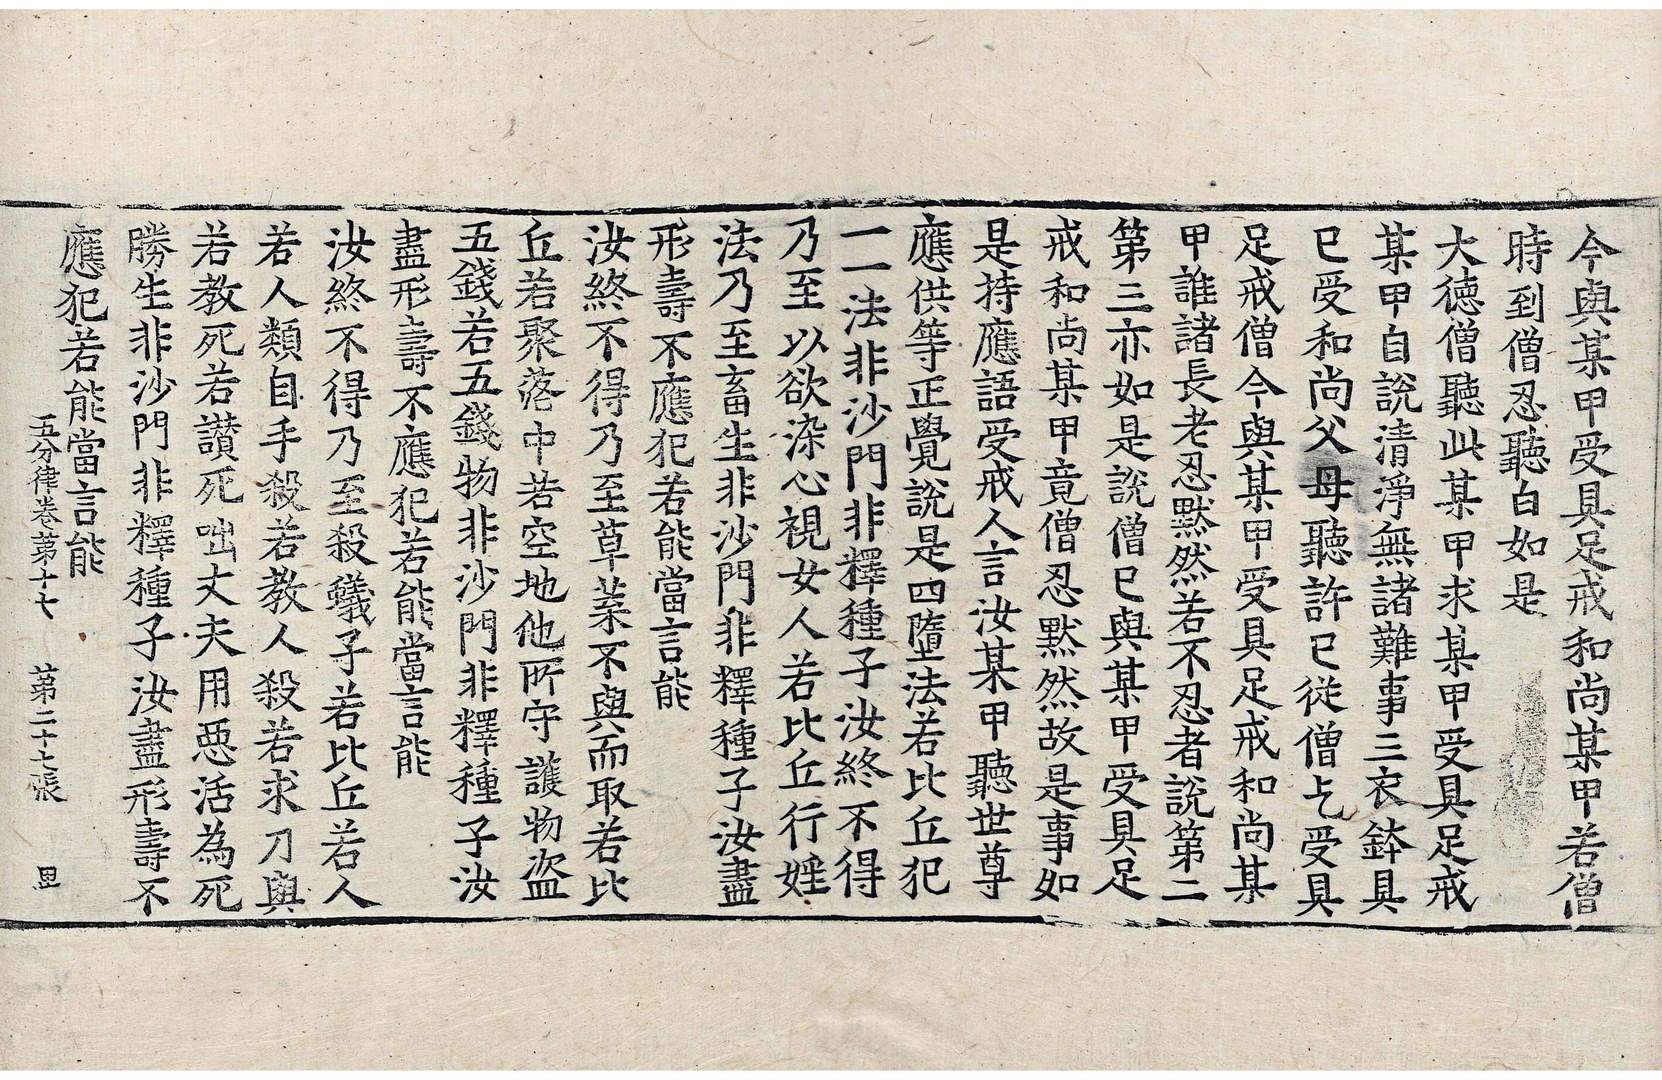 今與某甲受具足戒和尚某甲若僧
時到僧忍聽白如是
大德僧聽此某甲求某甲受具足戒
某甲自說清淨無諸難事三衣鉢具
已受和尚父母聽許已從僧乞受具
足戒僧今與某甲受具足戒和尚某
甲誰諸長老忍默然若不忍者說第二
第三亦如是說僧已與某甲受具足
戒和尚某甲竟僧忍默然故是事如
是持應語受戒人言汝某甲聽世尊
應供等正覺說是四墮法若比丘犯
一一法非沙門非釋種子汝終不得
乃至以欲染心視女人若比丘行婬
法乃至畜生非沙門非釋種子汝盡
形壽不應犯若能當言能
汝終不得乃至草葉不與而取若比
丘若聚落中若空地他所守護物盜
五錢若五錢物非沙門非釋種子汝
盡形壽不應犯若能當言能
汝終不得乃至殺蟻子若比丘若人
若人類自手殺若教人殺若求刀與
若教死若讚死咄丈夫用惡活為死
勝生非沙門非釋種子汝盡形壽不
應犯若能當言能
五分律卷第十七 第二十七張